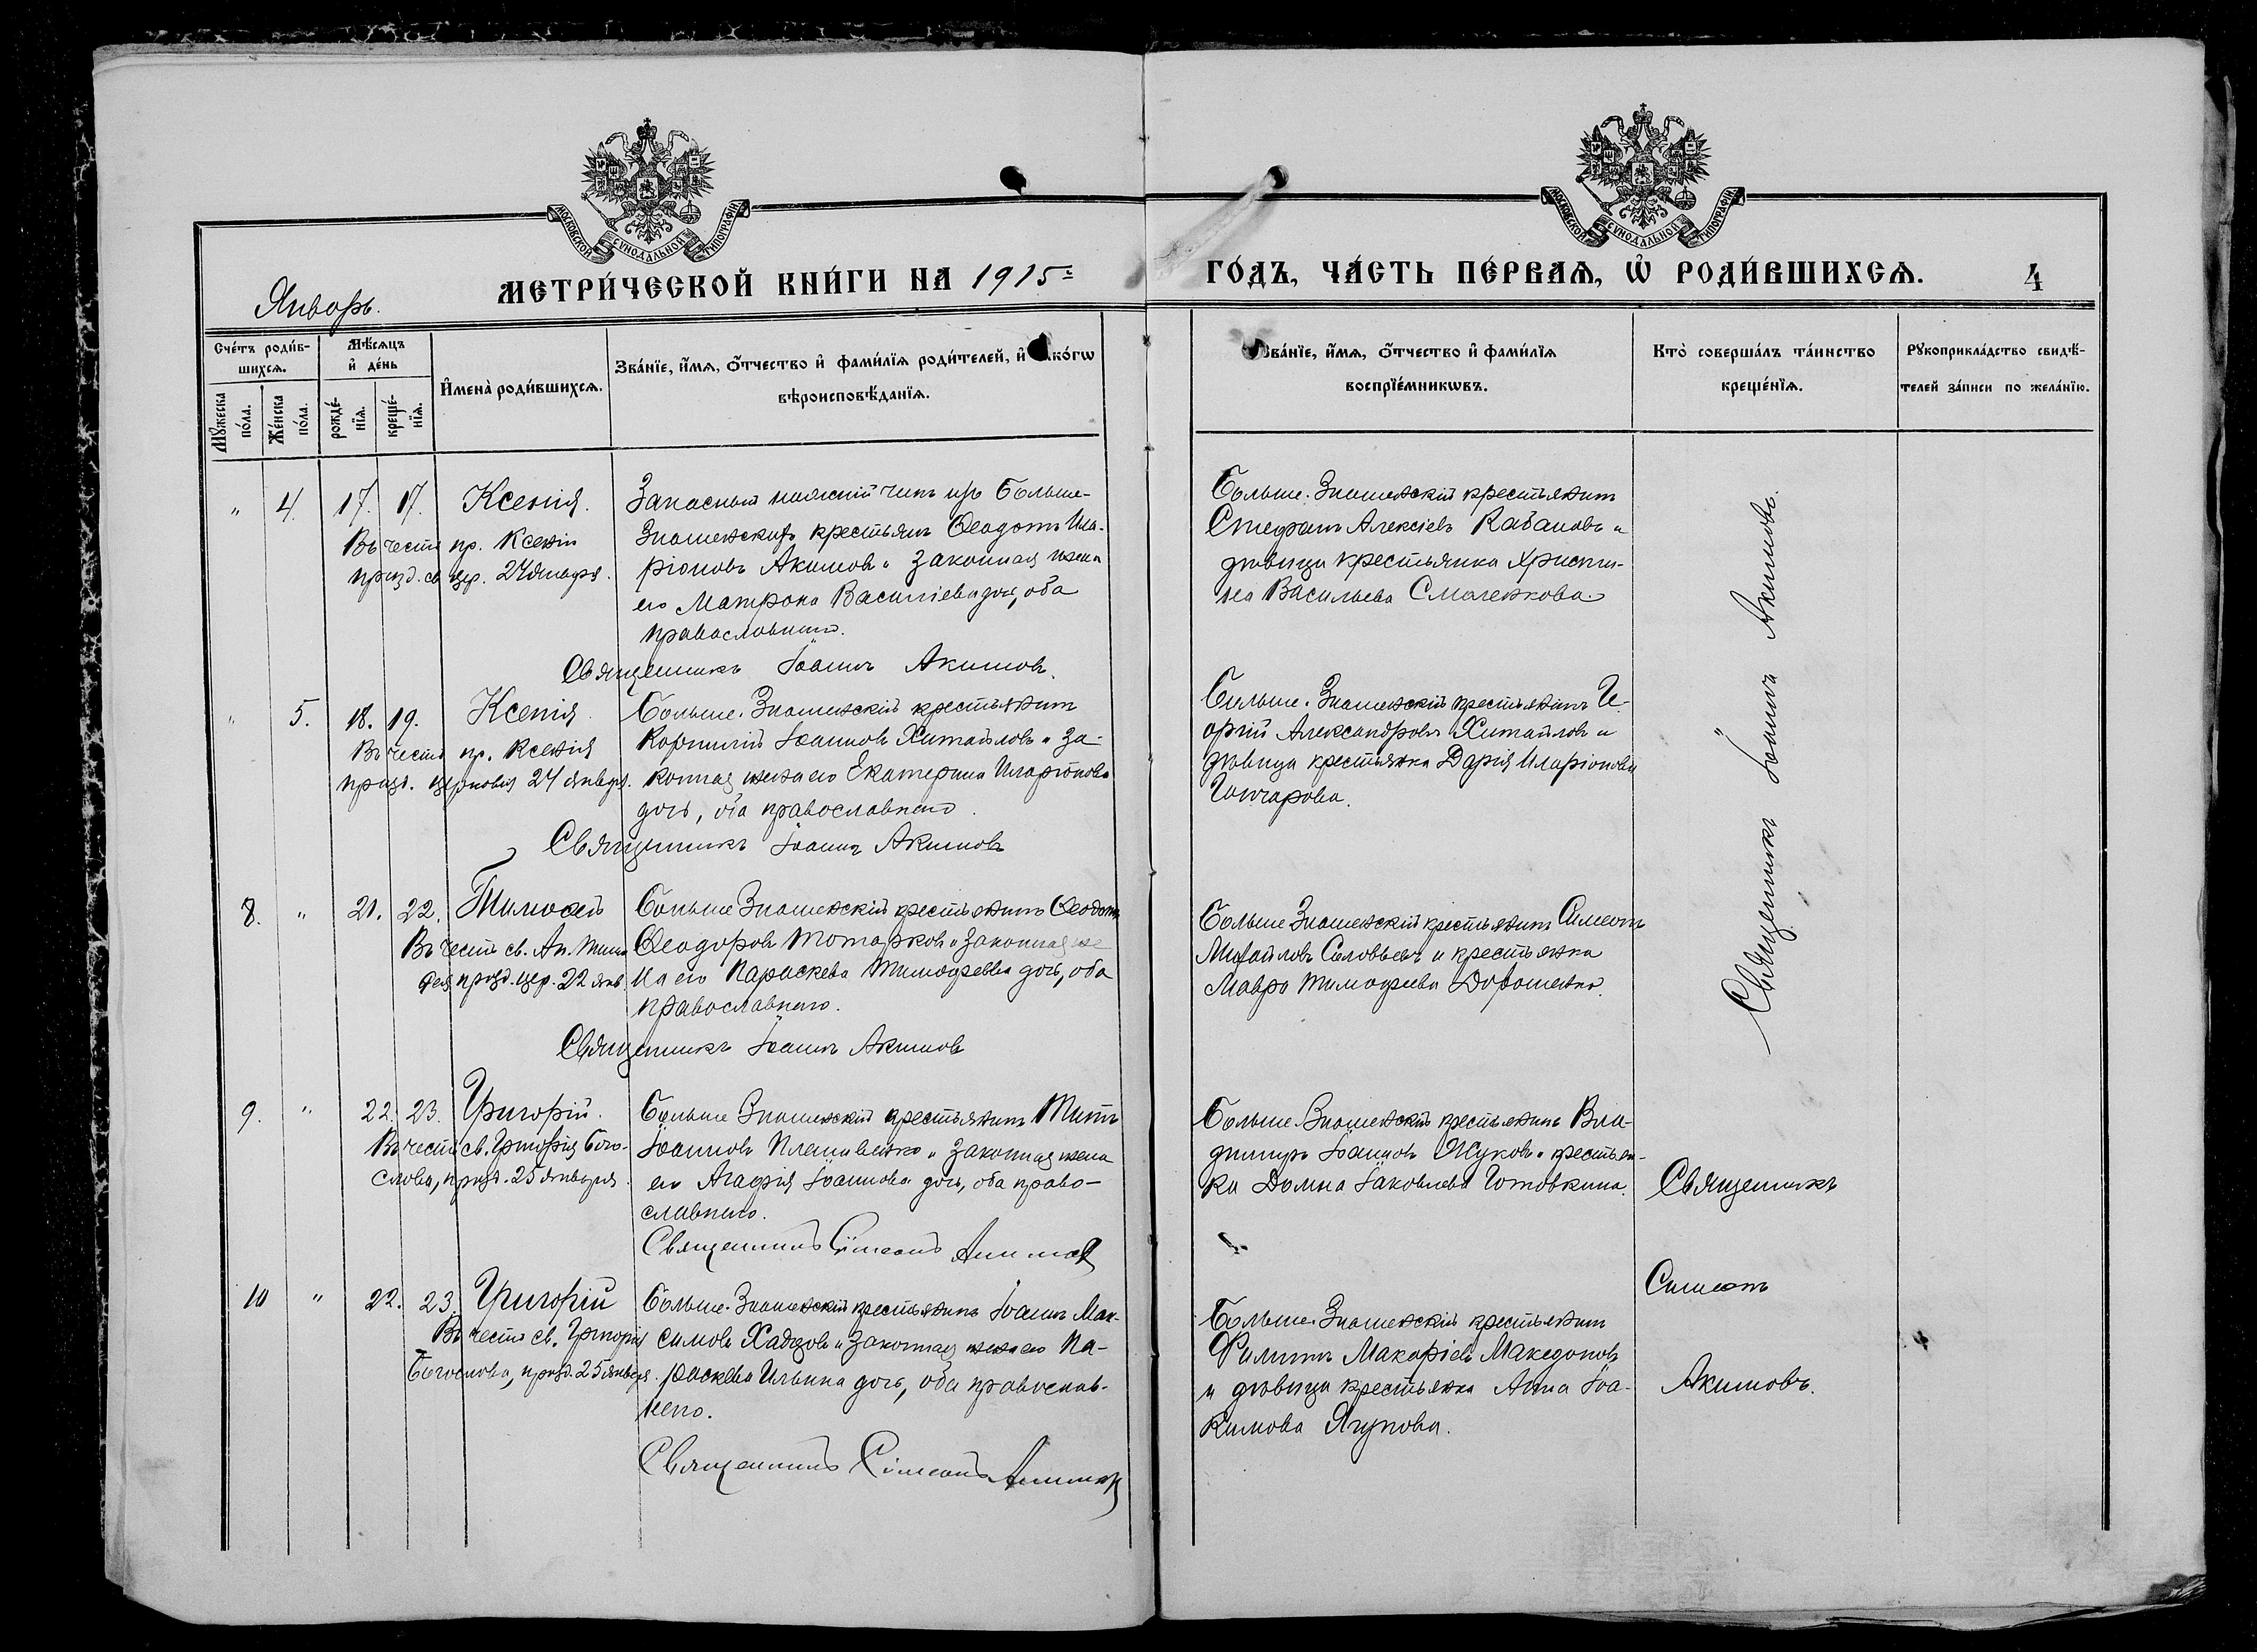 МОСКОВСКОЙ СУНОДАЛЬНОЙ ТИПОГРАФІИ
МОСКОВСКОЙ СУНОДАЛЬНОЙ ТИПОГРАФІИ
Январь.
МЕТРИ́ЧЕСКОЙ КНИ́ГИ НА 1915 г.
ГО́ДЪ, ЧА́СТЬ ПЕ́РВАѦ, Ѡ҆ РОДИ́ВШИХСѦ.
4
Сче́тъ роди́в-
шихсѧ.
Мѣ́сѧцъ
и҆ де́нь
Мꙋ́жеска
по́ла.
Же́нска
по́ла.
рожде́-
нїѧ.
креще́-
нїѧ.
И҆мена̀ роди́вшихсѧ.
Зва́нїе, и҆́мѧ, ѻ҆́тчество и҆ фами́лїѧ роди́телей, и҆ како́гѡ
вѣроисповѣ́данїѧ.
Зва́нїе, и҆́мѧ, ѻ҆́тчество и҆ фами́лїѧ
воспрїе́мникѡвъ.
Кто̀ соверша́лъ та́инство
креще́нїѧ.
Рꙋкоприкла́дство свидѣ́-
телей за́писи по жела́нїю.
" 4. 17. 17. Ксенія.
Въ честь пр. Ксеніи
празд. св. цер. 24 января.
Запасный нижній чинъ изъ Больше-
Знаменскихъ крестьянъ Ѳеодотъ Ила-
ріоновъ Акимовъ и законная жена
его Матрона Василіева дочь, оба
православнаго.
Священникъ Іоаннъ Акимовъ.
Больше-Знаменскій крестьянинъ
Стефанъ Алексіевъ Кабановъ и
дѣвица крестьянка Христи-
на Васильева Смаленкова.
" 5. 18. 19. Ксенія.
Въ честь пр. Ксенія
празд. церковія 24 января.
Больше-Знаменскій крестьянинъ
Корнилій Іоанновъ Хитайловъ и за-
конная жена его Екатерина Иларіонова
дочь, оба православнаго.
Священникъ Іоаннъ Акимовъ
Больше-Знаменскій крестьянинъ Ге-
оргій Александровъ Хитайловъ и
дѣвица крестьянка Дарія Иларіонова
Гончарова.
Священникъ Іоаннъ Акимовъ.
8. " 21. 22. Тимоѳей
Въ честь св. Ап. Тимо
ѳея празд. цер. 22 янв.
Больше Знаменскій крестьянинъ Ѳеодотъ
Ѳеодоровъ Томарковъ и законная же
на его Параскева Тимофеева дочь, оба
православнаго.
Священникъ Іоаннъ Акимовъ
Больше Знаменскій крестьянинъ Симеонъ
Михайловъ Соловьевъ и крестьянка
Мавра Тимофеева Дорошенко.
9. " 22. 23. Григорій.
Въ честь св. Григорія Бого-
слова, празд. 25 января.
Больше Знаменскій крестьянинъ Титъ
Іоанновъ Плешивенко и законная жена
его Агафія Іоаннова дочь, оба право-
славнаго.
Священникъ Симеонъ Акимовъ
Больше-Знаменскій крестьянинъ Вла-
диміръ Іоанновъ Жуковъ и крестьян-
ка Домна Іаковлева Готовкина.
Священникъ
Симеонъ
Акимовъ.
10 " 22. 23. Григорій
Въ честь св. Григорія
Богослова, празд. 25 января.
Больше-Знаменскій крестьянинъ Іоаннъ Мак-
симовъ Хадzовъ и законная жена его Па-
раскева Ильина дочь, оба православ-
наго.
Священникъ Симеонъ Акимовъ
Больше-Знаменскій крестьянинъ
Филиппъ Макаріевъ Македоновъ
и дѣвица крестьянка Анна Іоа-
кимова Ягупова.